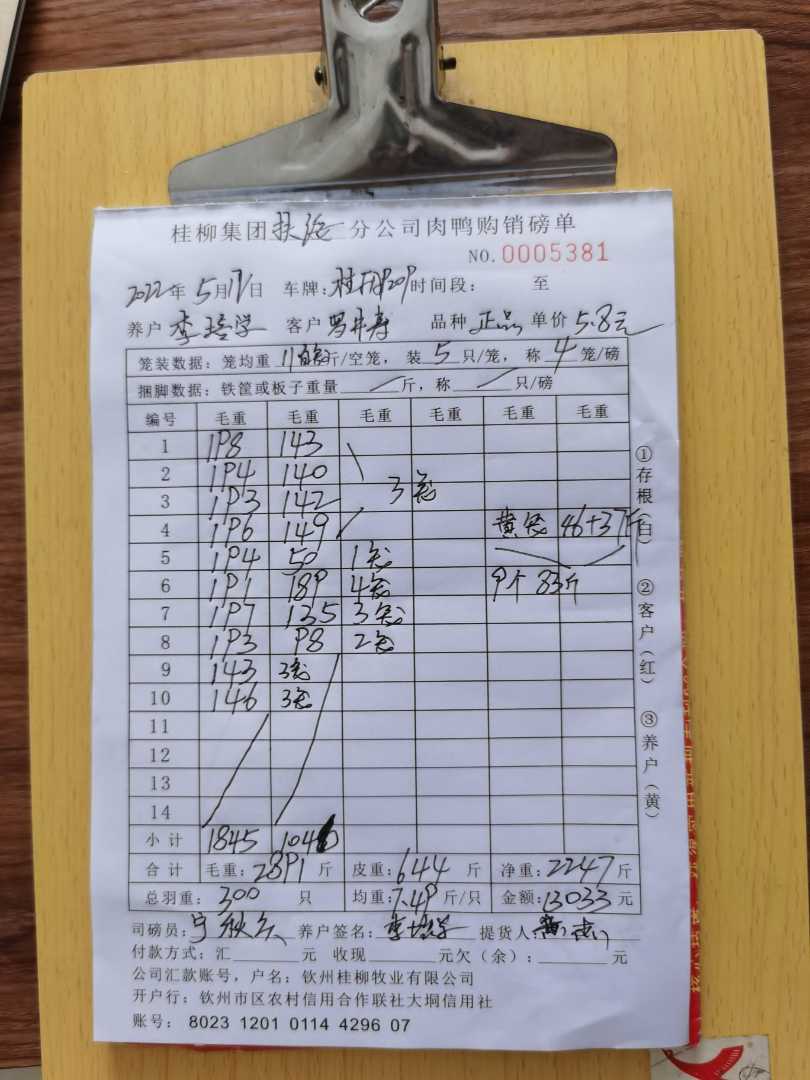 桂柳集团扶绥分公司肉鸭购销磅单
NO.0005381
2022年5月17日 车牌: 时间段: 至
养户 李培学 客户 品种 正品 单价 5.8元
笼装数据: 笼均重 斤/空笼, 装 5 只/笼, 称 4 笼/磅
捆脚数据: 铁筐或板子重量 / 斤, 称 / 只/磅
编号 毛重 毛重 毛重 毛重 毛重 毛重
1 198 143
2 194 140
3 193 142 3笼
4 196 149 黄笼 46+37斤
5 194 50 1笼
6 191 189 4笼 9个 83斤
7 197 135 3笼
8 193 98 2笼
9 143 3笼
10 146 3笼
11
12
13
14
小计 1845 1046
合计 毛重: 2891 斤 皮重: 644 斤 净重: 2247 斤
总羽重: 300 只 均重: 7.49 斤/只 金额: 13033 元
司磅员: 养户签名: 李培学 提货人:
付款方式: 汇 元 收现 元欠(余): 元
公司汇款账号, 户名: 钦州桂柳牧业有限公司
开户行: 钦州市区农村信用合作联社大垌信用社
账号: 8023 1201 0114 4296 07
①存根(白) ②客户(红) ③养户(黄)